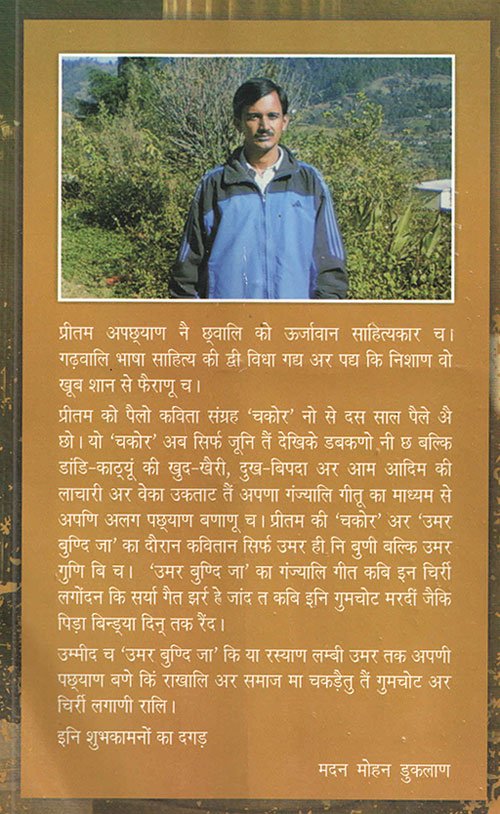 प्रीतम अपछ्याण नै छ्वालि को ऊर्जावान साहित्यकार च।
गढ़वालि भाषा साहित्य की द्वी विधा गद्य अर पद्य कि निशाण वो
खूब शान से फैराणू च।
प्रीतम को पैलो कविता संग्रह ‘चकोर’ नो से दस साल पैले ऐ
छो। यो ‘चकोर’ अब सिर्फ जूनि तैं देखिके डबकणो नी छ बल्कि
डांडि-काठ्यूं की खुद-खैरी, दुख-बिपदा अर आम आदिम की
लाचारी अर वेका उकताट तैं अपणा गंज्यालि गीतू का माध्यम से
अपणि अलग पछ्याण बणाणू च। प्रीतम की ‘चकोर’ अर ‘उमर
बुण्दि जा’ का दौरान कवितान सिर्फ उमर ही नि बुणी बल्कि उमर
गुणि बि च। ‘उमर बुण्दि जा’ का गंज्यालि गीत कबि इन चिर्री
लगोंदन कि सर्या गैत झर्र हे जांद त कबि इनि गुमचोट मरदीं जैकि
पिड़ा बिन्ड्या दिन् तक रैंद।
उम्मीद च ‘उमर बुण्दि जा’ कि या रस्याण लम्बी उमर तक अपणी
पछ्याण बणे किं राखालि अर समाज मा चकड़ैतु तैं गुमचोट अर
चिर्री लगाणी रालि।
इनि शुभकामनों का दगड़
मदन मोहन डुकलाण